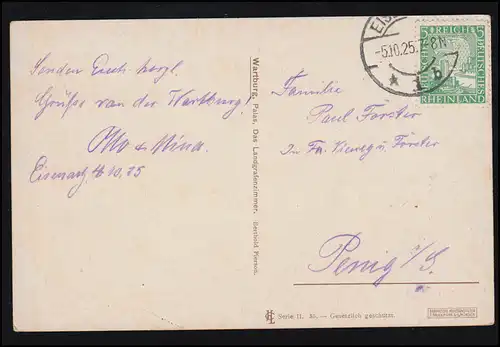 Senden Euch herzl.
Grüße von der Wartburg!
Otto & Minna.
Eisenach 4/10.25
Wartburg, Palas, Das Landgrafenzimmer. Berthold Pierson.
EIS
-5.10.25. 7-8N
* 1 b
5 REICH 5
DEUTSCHES
RHEINLAND
Familie
Paul Förster
In Fa. Vierweg u. Förster
Penig i/S.
Serie II. — Gesetzlich geschützt.